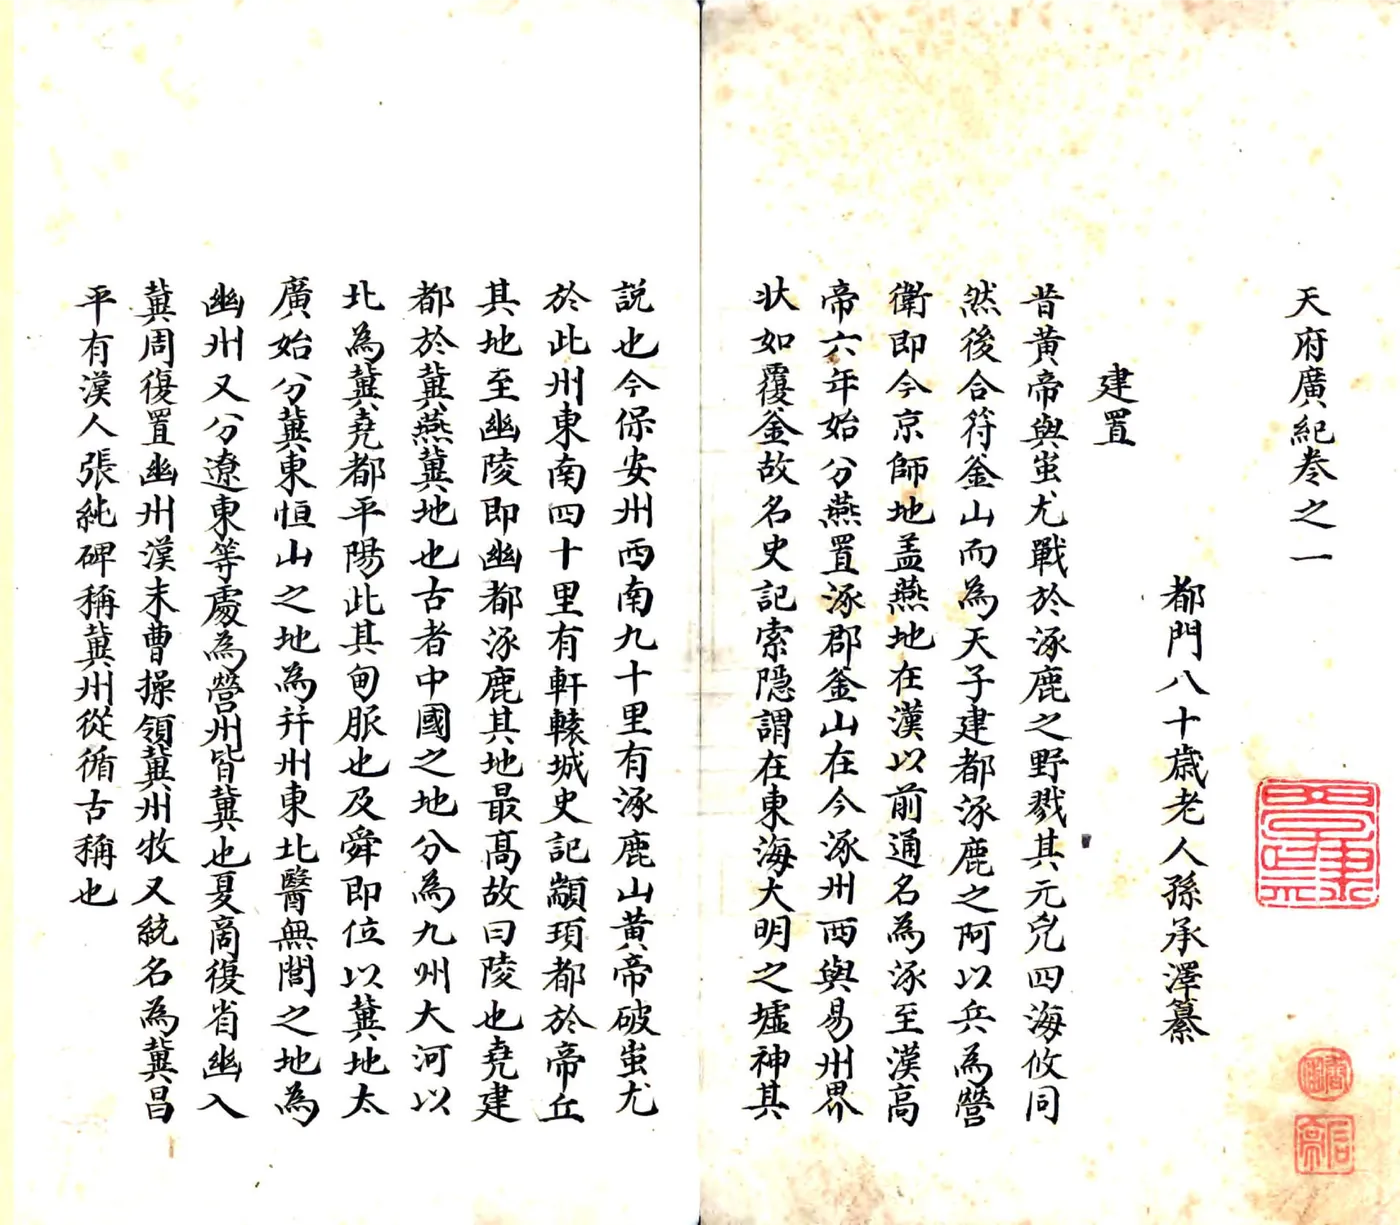 天府廣紀卷之一
都門八十歲老人孫承澤纂
建置
昔黃帝與蚩尤戰於涿鹿之野戮其元兇四海攸同
然後合符釜山而為天子建都涿鹿之阿以兵為營
衛即今京師地盖燕地在漢以前通名為涿至漢高
帝六年始分燕置涿郡釜山在今涿州西與易州界
狀如覆釜故名史記索隱謂在東海大明之墟神其
說也今保安州西南九十里有涿鹿山黃帝破蚩尤
於此州東南四十里有軒轅城史記顓頊都於帝丘
其地至幽陵即幽都涿鹿其地最高故曰陵也堯建
都於冀燕冀地也古者中國之地分為九州大河以
北為冀堯都平陽此其甸脈也及舜即位以冀地太
廣始分冀東恒山之地為并州東北醫無閭之地為
幽州又分遼東等處為營州皆冀也夏商復省幽入
冀周復置幽州漢末曹操領冀州牧又統名為冀昌
平有漢人張純碑稱冀州從循古稱也